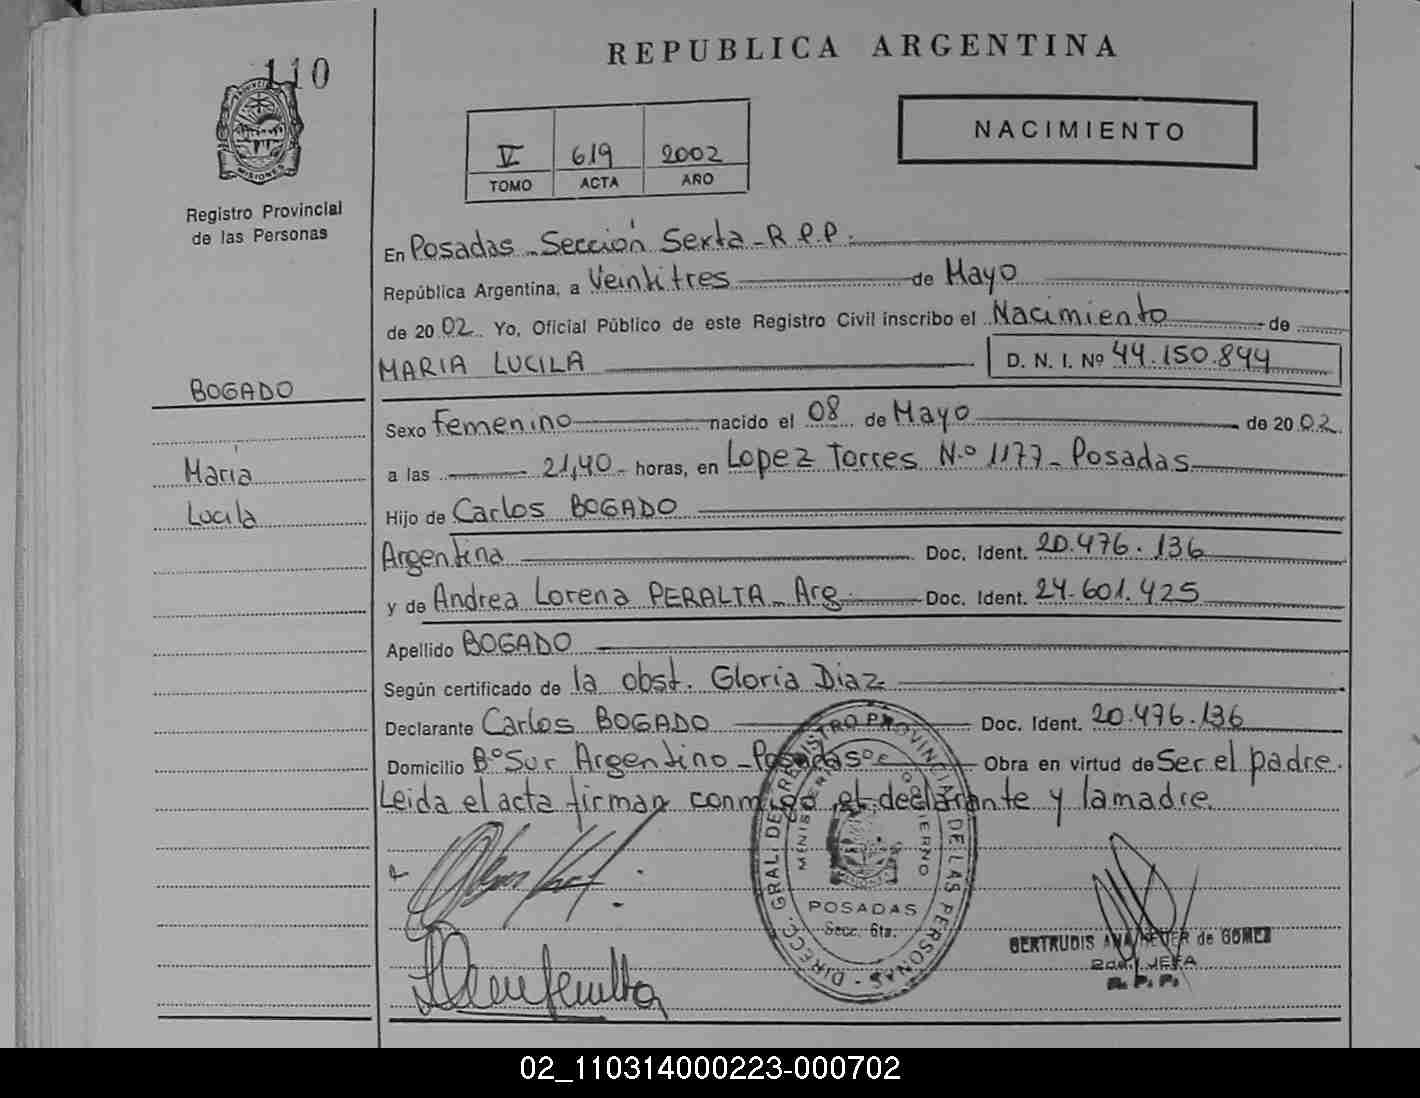 110
PROVINCIA
MISIONES
Registro Provincial
de las Personas
BOGADO
María
Lucila
REPUBLICA ARGENTINA
V 619 2002
TOMO ACTA AÑO
NACIMIENTO
En Posadas - Sección Sexta - R.P.P.
República Argentina, a Veintitres de Mayo
de 2002. Yo, Oficial Público de este Registro Civil inscribo el Nacimiento de
MARIA LUCILA D. N. I. Nº 44.150.844
Sexo Femenino nacido el 08 de Mayo de 2002.
a las 21,40 horas, en Lopez Torres N.º 1177 - Posadas
Hijo de Carlos BOGADO
Argentina Doc. Ident. 20.476.136
y de Andrea Lorena PERALTA - Arg. Doc. Ident. 24.601.425
Apellido BOGADO
Según certificado de la obst. Gloria Diaz
Declarante Carlos BOGADO Doc. Ident. 20.476.136
Domicilio Bº Sur Argentino - Posadas Obra en virtud de Ser el padre.
Leida el acta firman conmigo el declarante y la madre.
DIRECC. GRAL. DE REGISTRO PROVINCIAL DE LAS PERSONAS
MINISTERIO DE GOBIERNO
POSADAS
Secc. 6ta.
GERTRUDIS ANA de GOMEZ
JEFA
R. P. P.
02_110314000223-000702